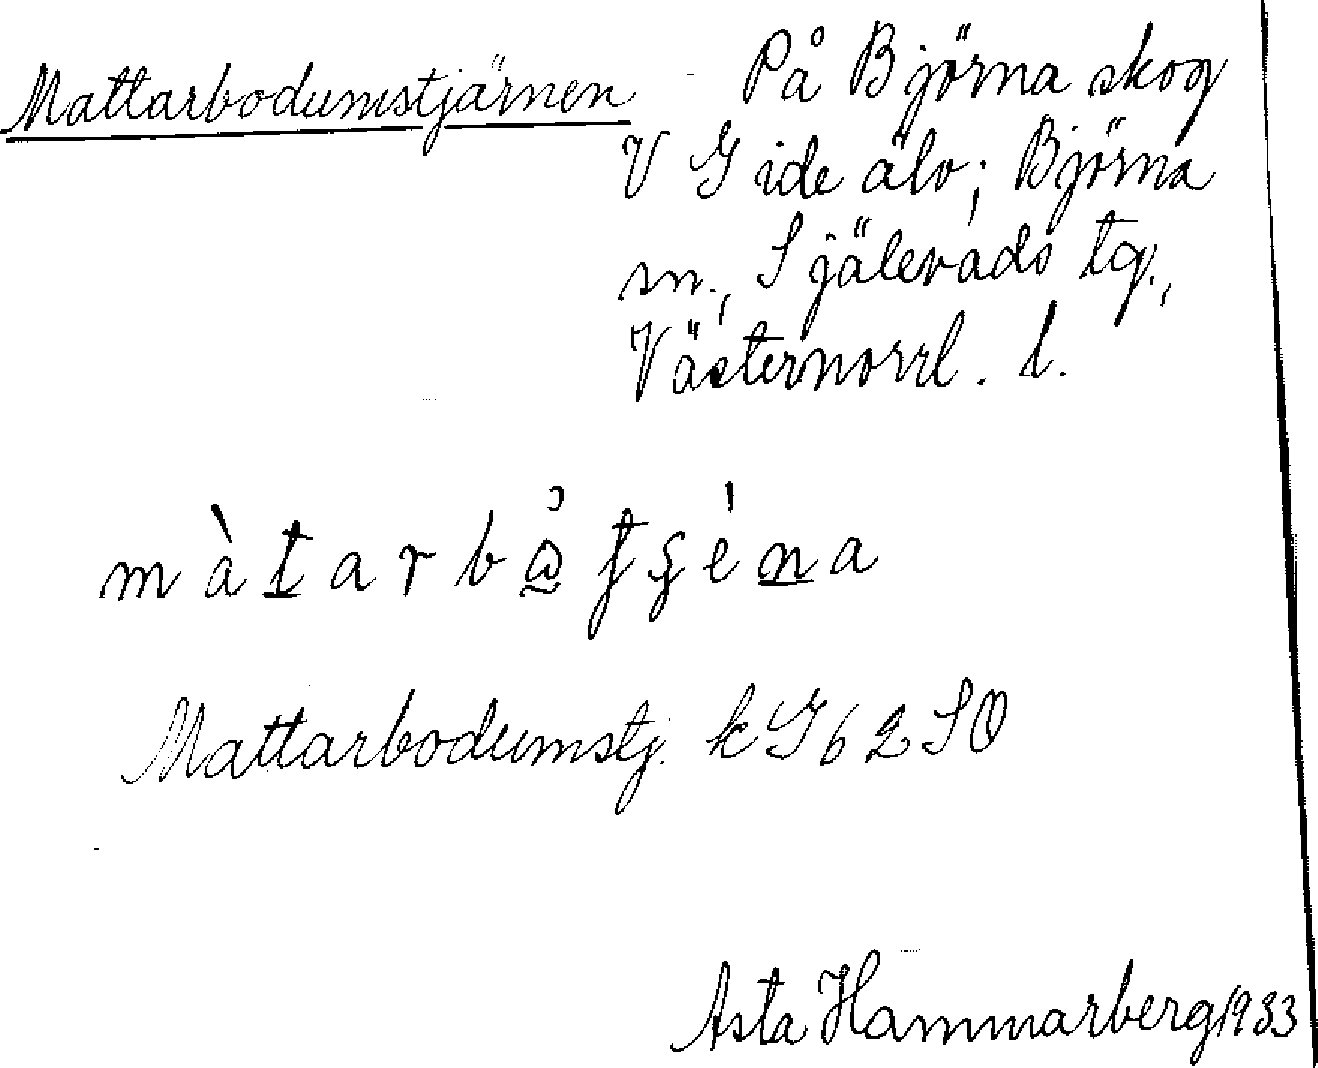 Mattarbodumstjärnen
På Björna skog
V Gide älv; Björna
sn., Själevads tg.,
Västernorrl. l.
màtarb
Mattarbodumstj. k G 62 SO
Asta Hammarberg 1933